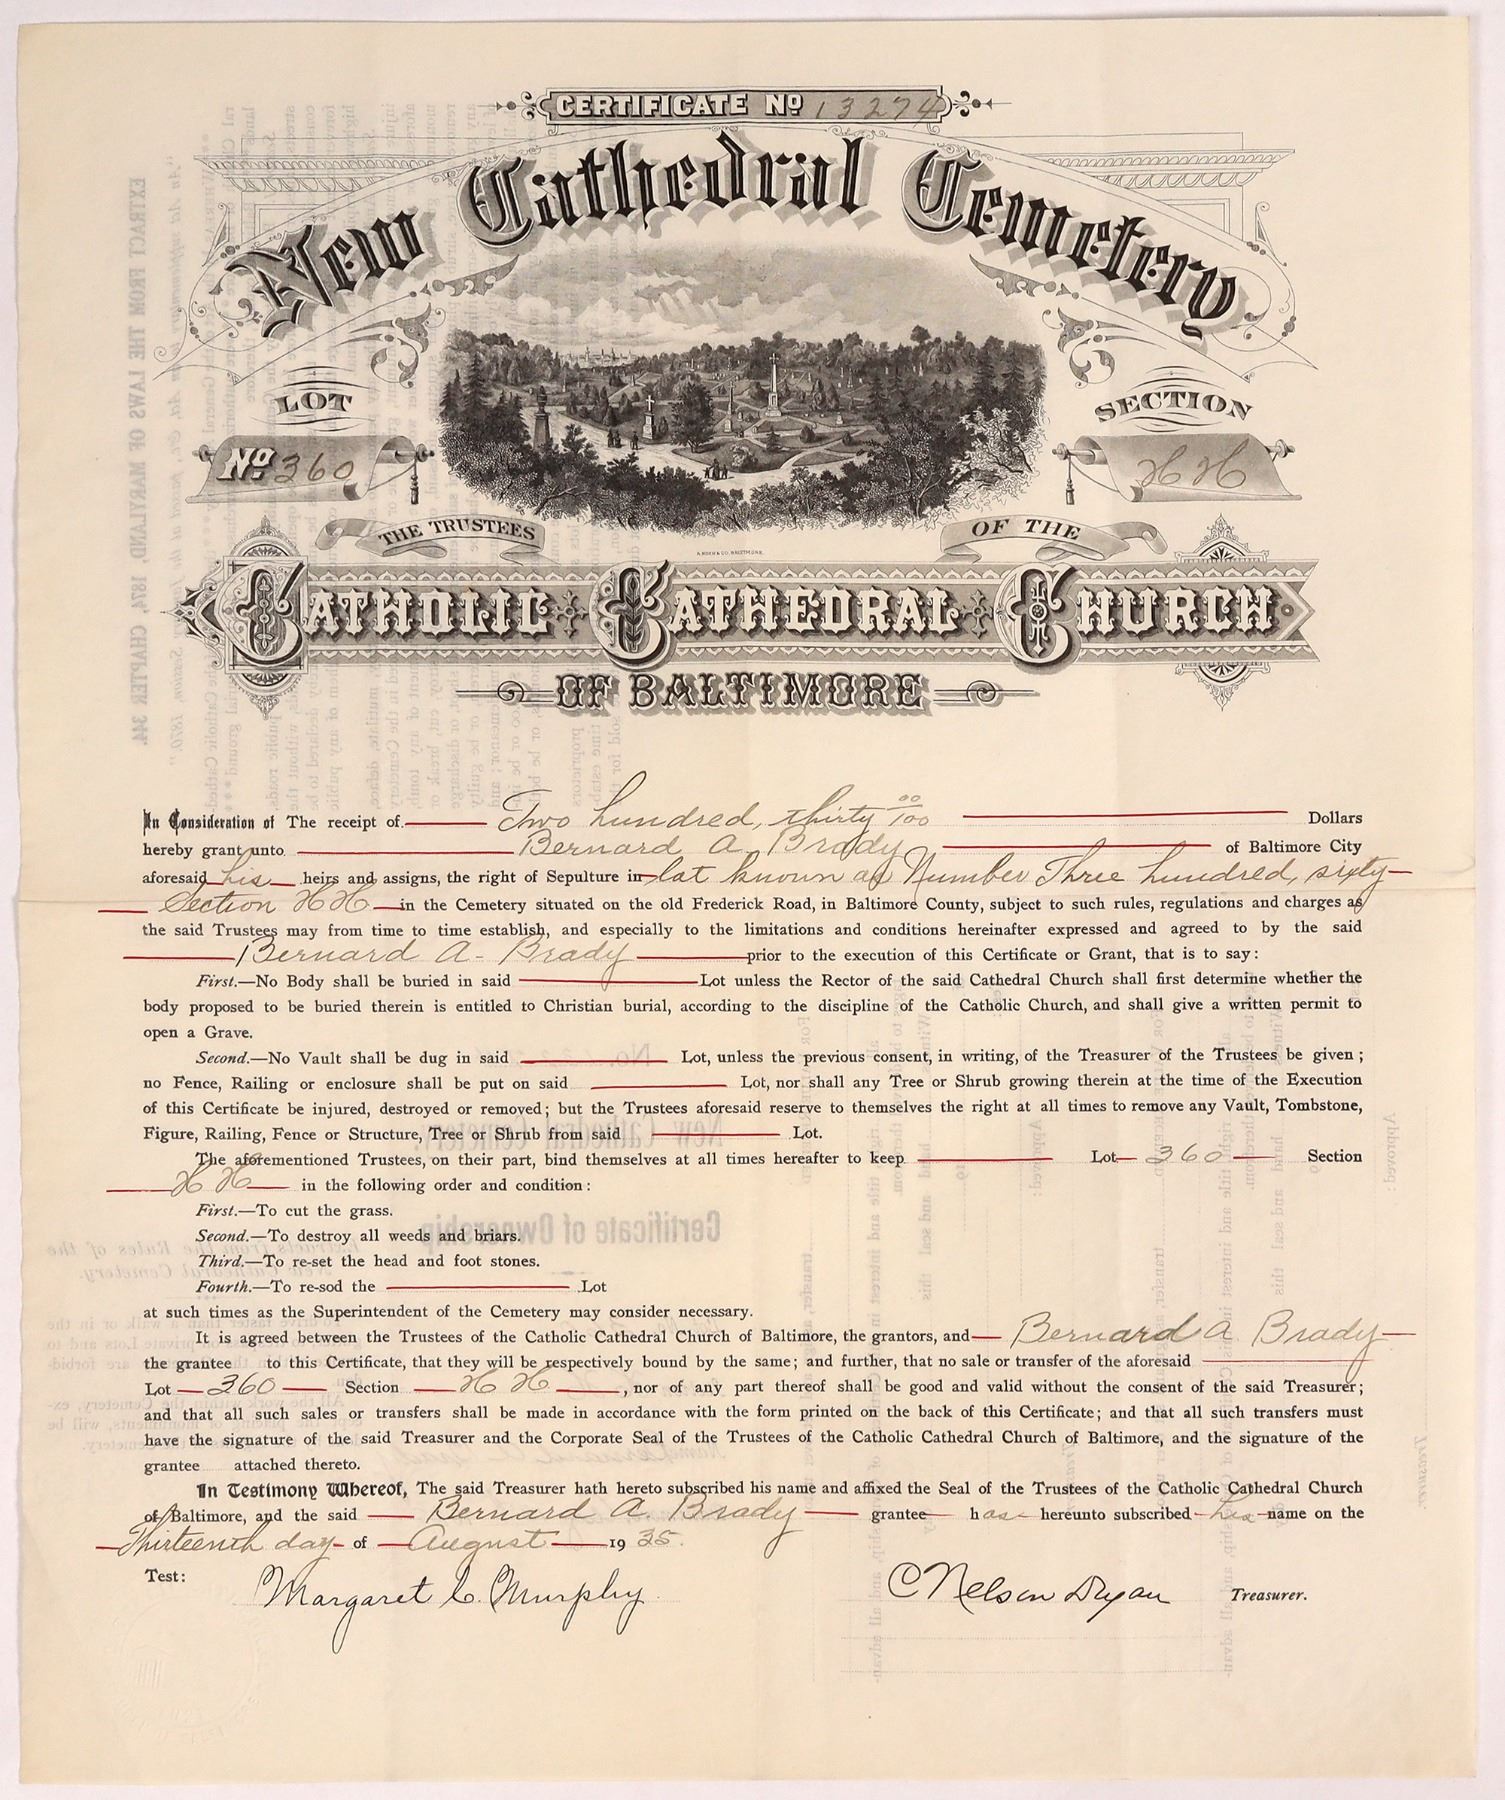 CERTIFICATE No 13274
New Cathedral Cemetery
LOT
SECTION
No. 360
H H
THE TRUSTEES
OF THE
A. HOEN & CO. BALTIMORE.
CATHOLIC CATHEDRAL CHURCH
OF BALTIMORE
In Consideration of The receipt of Two hundred, thirty 00/100 Dollars
hereby grant unto Bernard A. Brady of Baltimore City
aforesaid his heirs and assigns, the right of Sepulture in lot known as Number Three hundred, sixty
Section H H in the Cemetery situated on the old Frederick Road, in Baltimore County, subject to such rules, regulations and charges as
the said Trustees may from time to time establish, and especially to the limitations and conditions hereinafter expressed and agreed to by the said
Bernard A. Brady prior to the execution of this Certificate or Grant, that is to say:
First.—No Body shall be buried in said Lot unless the Rector of the said Cathedral Church shall first determine whether the
body proposed to be buried therein is entitled to Christian burial, according to the discipline of the Catholic Church, and shall give a written permit to
open a Grave.
Second.—No Vault shall be dug in said Lot, unless the previous consent, in writing, of the Treasurer of the Trustees be given;
no Fence, Railing or enclosure shall be put on said Lot, nor shall any Tree or Shrub growing therein at the time of the Execution
of this Certificate be injured, destroyed or removed; but the Trustees aforesaid reserve to themselves the right at all times to remove any Vault, Tombstone,
Figure, Railing, Fence or Structure, Tree or Shrub from said Lot.
The aforementioned Trustees, on their part, bind themselves at all times hereafter to keep Lot 360 Section
H H in the following order and condition:
First.—To cut the grass.
Second.—To destroy all weeds and briars.
Third.—To re-set the head and foot stones.
Fourth.—To re-sod the Lot
at such times as the Superintendent of the Cemetery may consider necessary.
It is agreed between the Trustees of the Catholic Cathedral Church of Baltimore, the grantors, and Bernard A. Brady
the grantee to this Certificate, that they will be respectively bound by the same; and further, that no sale or transfer of the aforesaid
Lot 360 Section H H, nor of any part thereof shall be good and valid without the consent of the said Treasurer;
and that all such sales or transfers shall be made in accordance with the form printed on the back of this Certificate; and that all such transfers must
have the signature of the said Treasurer and the Corporate Seal of the Trustees of the Catholic Cathedral Church of Baltimore, and the signature of the
grantee attached thereto.
In Testimony Whereof, The said Treasurer hath hereto subscribed his name and affixed the Seal of the Trustees of the Catholic Cathedral Church
of Baltimore, and the said Bernard A. Brady grantee has hereunto subscribed his name on the
Thirteenth day of August 1935.
Test: Margaret C. Murphy C Nelson Dugan Treasurer.